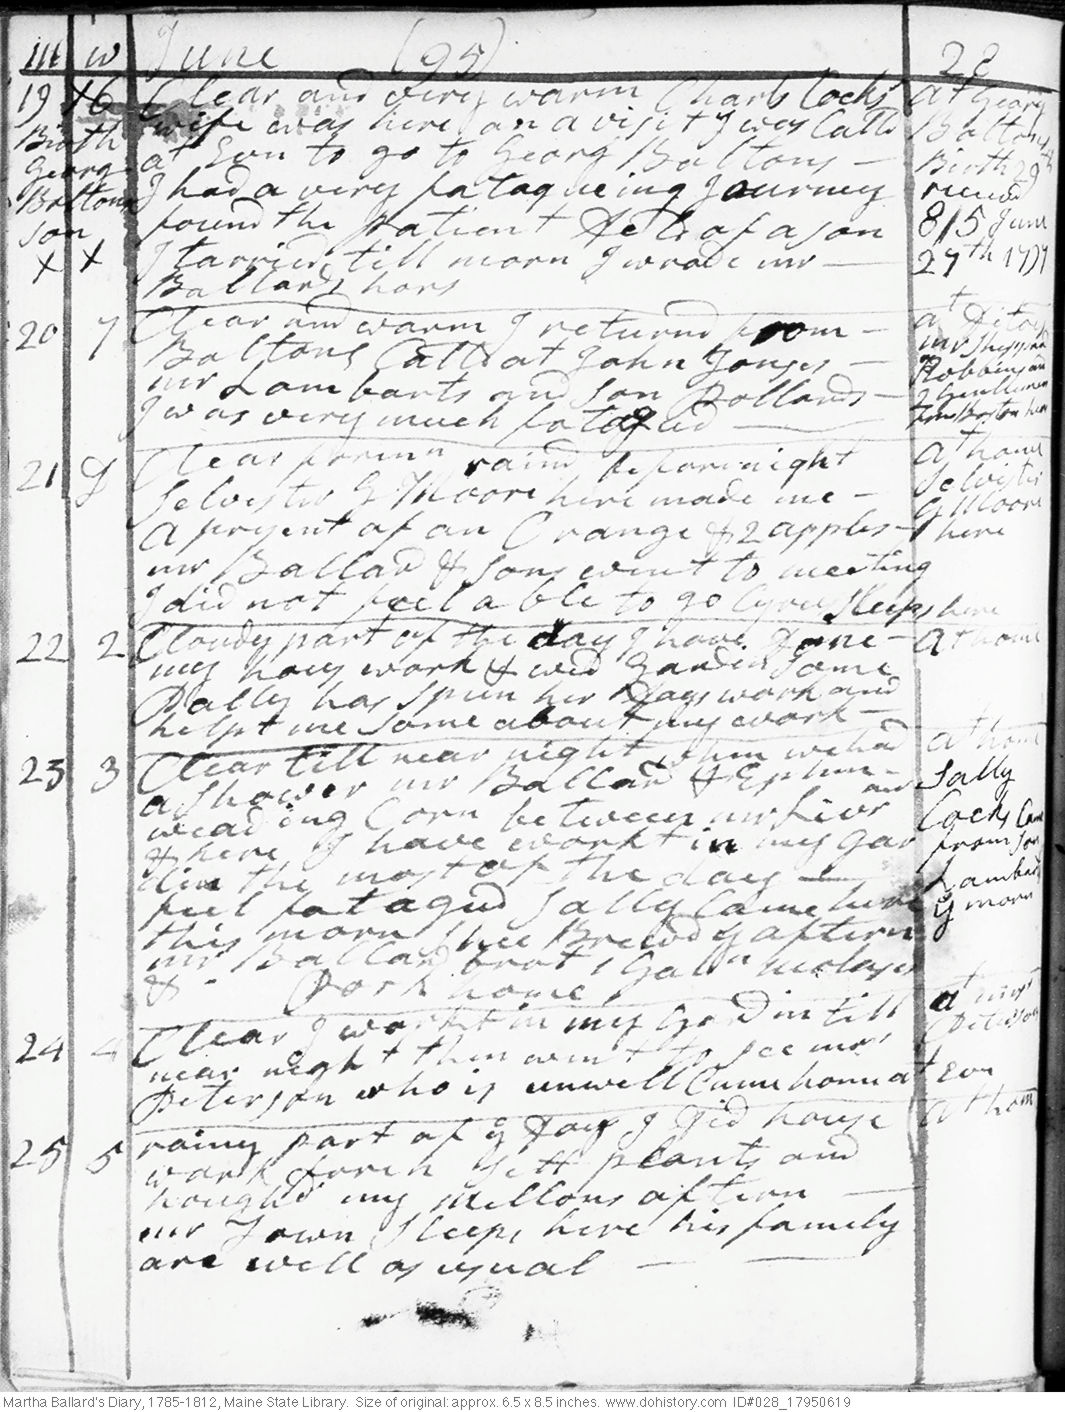 m w June (95) 28
19 +6 Clear and very warm Charls Cocks at Georg
Birth wife was here on a visit I was Calld Boltons
Georg at Evn to go to Georg Boltons — Birth 29th
Boltons I had a very fatagueing Journey recievd
son found the patient Deld of a son 8/5 June
x x I tarried till morn I wrode mr — 27th 1797
Ballards hors
20 7 Clear and warm I returnd from — at Ditoes
Boltons Calld at John Jonses — mr Shepard
mr Lambarts and Son Pollards — Robbins and
I was very much fatagud — 2 gentlemen
from Boston here
21 D Clear foren raind before night at home
Selvister G Moore here made me — Selvister
a presént of an Orange & 2 apples — G Moore
mr Ballard & sons went to meeting here
I did not feel able to go Cyrus Sleeps here
22 2 Cloudy part of the day I have Done — at home
my hous work & wed gardin some
Dally has spun her Days work and
helpt me some about my work —
23 3 Clear till near night when we had at home
a shower mr Ballard & Ephm — Sally
weading Corn between mr Livr Cocks Came
& here I have workt in my gar from Son
din the most of the day — Lambards
feel fatagud Sally Came here y morn
this morn shee Brewd y aftern
mr Ballard brot 1 Galn molases
& Pork home
24 4 Clear I workt in my Gardin till at mrs
near night then went to see mrs Peterson
Peterson who is unwell Came home at Evn
25 5 rainy part of y Day I Did house at home
work foren sett plants and
hough'd my Mellons aftern —
mr Town Sleeps here his family
are well as usual —
Martha Ballard's Diary, 1785-1812, Maine State Library. Size of original: approx. 6.5 x 8.5 inches. www.dohistory.com ID#028_17950619